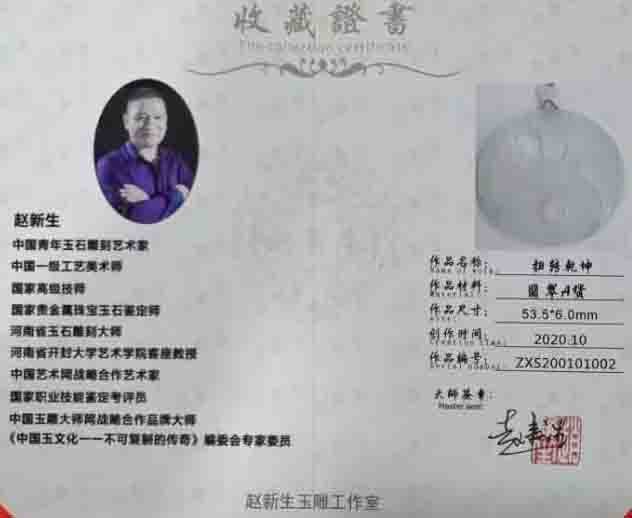 收藏證書
The collection certificate
赵新生
中国青年玉石雕刻艺术家
中国一级工艺美术师
国家高级技师
国家贵金属珠宝玉石鉴定师
河南省玉石雕刻大师
河南省开封大学艺术学院客座教授
中国艺术网战略合作艺术家
国家职业技能鉴定考评员
中国玉雕大师网战略合作品牌大师
《中国玉文化一一不可复制的传奇》编委会专家委员
作品名称: 扭转乾坤
Name of work:
作品材料: 翡翠A货
Material:
作品尺寸: 53.5*6.0mm
size:
创作时间: 2020.10
Creation time:
作品编号: ZXS200101002
Serial number:
大师签章:
Master seal:
赵新生玉雕工作室